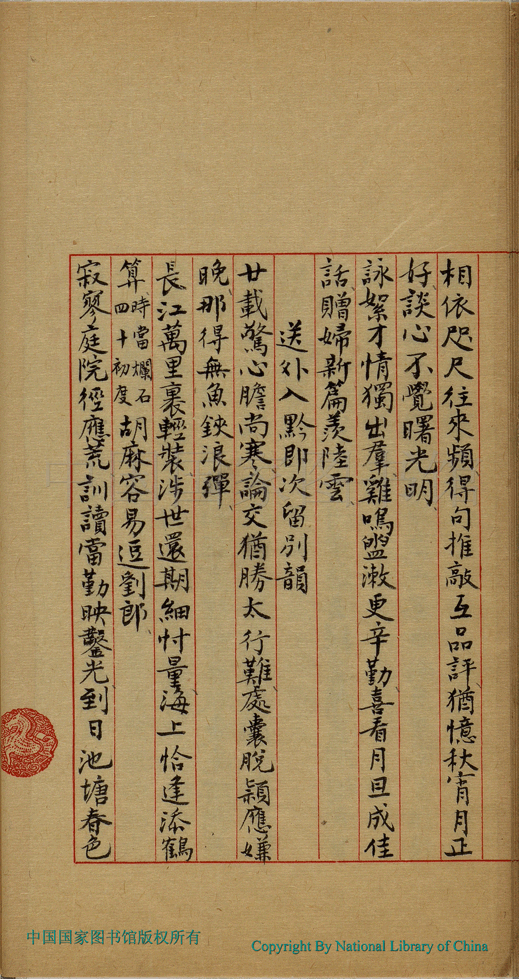 相依咫尺往來頻得句推敲互品評猶憶秋宵月正
好談心不覺曙光明
詠絮才情獨出羣雞鳴盥漱更辛勤喜看月旦成佳
話贈婦新篇羨陸雲
送外入黔即次留別韻
廿載驚心膽尚寒論交猶勝太行難處囊脫穎應嫌
晚那得無魚鋏浪彈
長江萬里裹輕裝涉世還期細忖量海上恰逢添鶴
算時當爛石四十初度胡麻容易逗劉郎
寂寥庭院徑應荒訓讀當勤映鑿光到日池塘春色
中国国家图书馆版权所有
Copyright By National Library of China